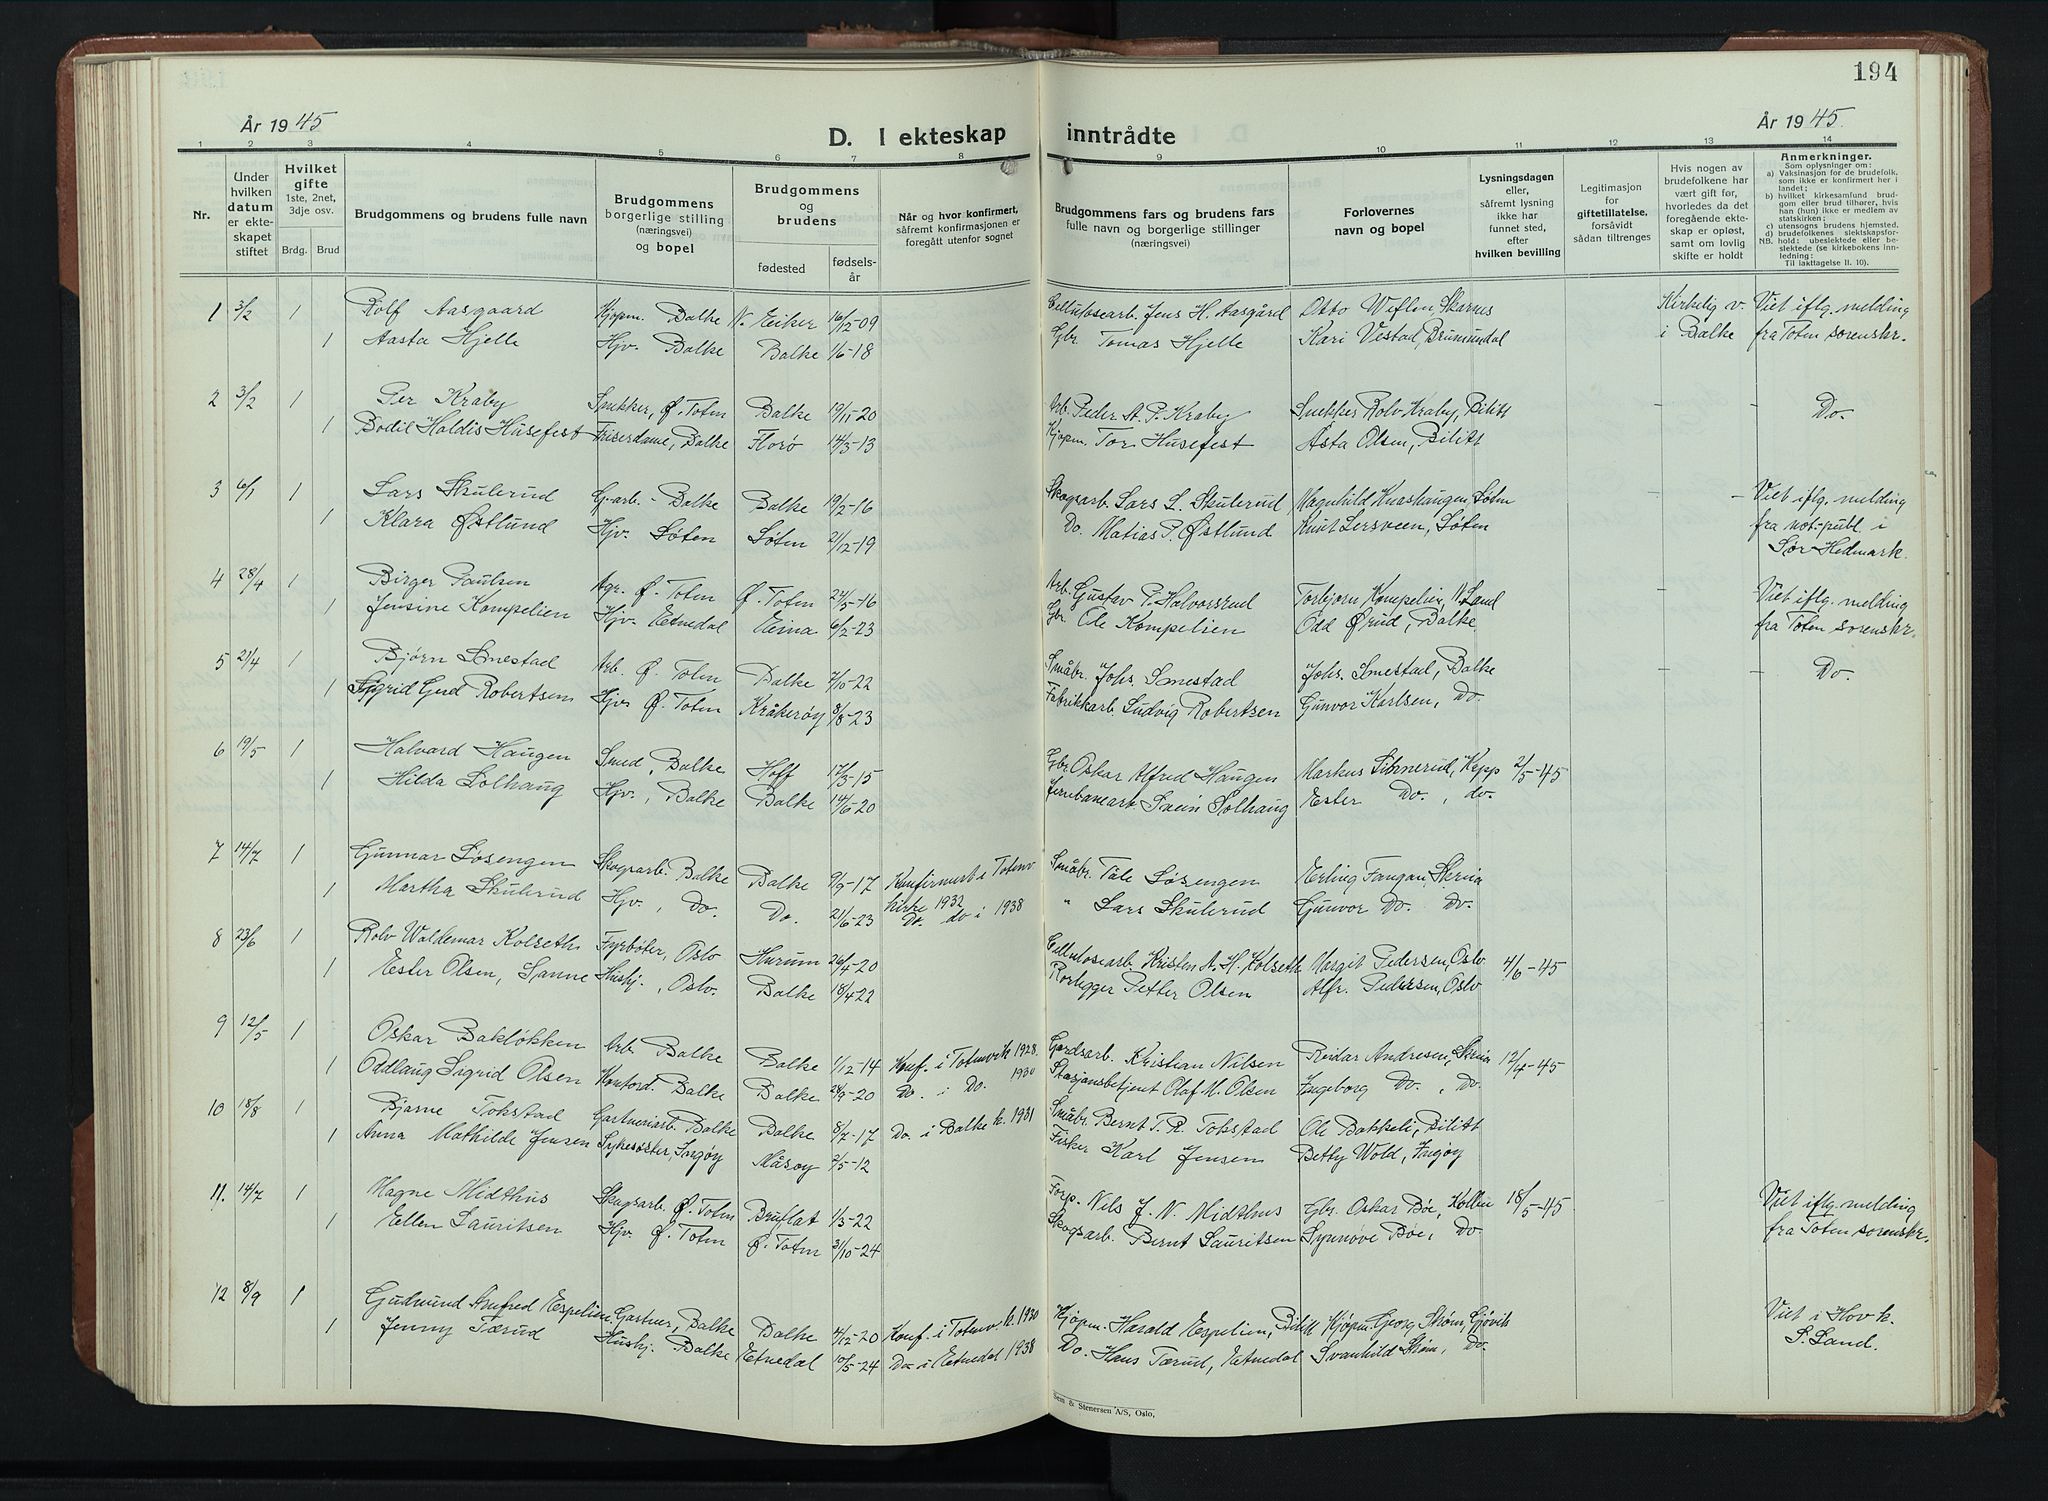 194
År 1945
D. I ekteskap inntrådte
År 1945.
1 2 3 4 5 6 7 8 9 10 11 12 13 14
Nr.
Under hvilken datum er ekteskapet stiftet
Hvilket gifte 1ste, 2net, 3dje osv.
Brdg. Brud
Brudgommens og brudens fulle navn
Brudgommens borgerlige stilling (næringsvei) og bopel
Brudgommens og brudens
fødested
fødselsår
Når og hvor konfirmert, såfremt konfirmasjonen er foregått utenfor sognet
Brudgommens fars og brudens fars fulle navn og borgerlige stillinger (næringsvei)
Forlovernes navn og bopel
Lysningsdagen eller, såfremt lysning ikke har funnet sted, efter hvilken bevilling
Legitimasjon for giftetillatelse, forsåvidt sådan tiltrenges
Hvis nogen av brudefolkene har vært gift før, hvorledes da det foregående ekteskap er opløst, samt om lovlig skifte er holdt
Anmerkninger.
Som oplysninger om:
a) Vaksinasjon for de brudefolk, som ikke er konfirmert her i landet;
b) hvilket kirkesamfund brudgom eller brud tilhører, hvis han (hun) ikke er medlem av statskirken;
c) utensogns brudens hjemsted.
d) brudefolkenes slektskapsforhold: ubeslektede eller beslektede (se kirkebokens innledning:
NB.
Til Iakttagelse II. 10).
1 3/2 1 Rolf Aasgaard Kjøpm. Balke N. Eiker 16/12-09 Cellulosearb. Jens H. Aasgård Otto Weflen, Skarnes Kirkelig v. Viet iflg. melding
1 Aasta Hjelle Hjv. Balke Balke 1/6-18 Gbr. Tomas Hjelle Kari Vestad, Brumundal i Balke fra Toten sorenskr.
2 3/2 1 Per Kraby Snekker, Ø. Toten Balke 19/11-20 Arb. Peder St. P. Kraby Snekker Rolv Kraby, Bilitt - - Do.
1 Bodil Haldis Husefest Friserdame, Balke Florø 14/3-13 Kjøpm. Tor Husefest Åsta Olsen, Bilitt
3 6/1 1 Lars Skulerud G.arb. Balke Balke 19/2-16 Skogsarb. Lars L. Skulerud Magnhild Knashaugen, Løten - - Viet iflg. melding
1 Klara Østlund Hjv. Løten Løten 21/12-19 Do. Matias P. Østlund Knut Lersveen, Løten fra not.publ. i
Sør-Hedmark.
4 28/4 1 Birger Paulsen Agr. Ø. Toten Ø. Toten 24/5-16 Arb. Gustav P. Halvorsrud Torbjørn Kompelien, N. Land - - Viet iflg. melding
1 Jensine Kompelien Hjv. Etnedal Eina 6/2-23 Gbr. Ole Kompelien Odd Ørud, Balke fra Toten sorenskr.
5 21/4 1 Bjørn Smestad Arb. Ø. Toten Balke 7/10-22 Småbr. Johs. Smestad Johs. Smestad, Balke - - Do.
1 Sigrid Gerd Robertsen Hjv. Ø. Toten Kråkerøy 8/8-23 Fabrikkarb. Ludvig Robertsen Gunvor Karlsen, Do.
6 19/5 1 Halvard Haugen Smed, Balke Hoff 17/3-15 Gbr. Oskar Alfred Haugen Markus Kepp 2/5-45
1 Hilda Solhaug Hjv., Balke Balke 14/6-20 Jernbanearb. Svein Solhaug Ester Do., do.
7 14/7 1 Gunnar Løsengen Skogsarb. Balke Balke 9/9-17 Konfirmert i Totenv. kirke 1932 Småbr. Tåle Løsengen Erling Fangan, Skreia
1 Martha Skulerud Hjv., Do. Do. 21/6-23 Do. do i 1938 " Lars Skulerud Gunvor Do. Do.
8 23/6 1 Rolv Waldemar Kolseth Fyrbøter, Oslo Hurum 26/4-20 Cellulosearb. Kristen A. H. Kolseth Margit Pedersen, Oslo 4/6-45
1 Ester Olsen, Sanne Hushj., Oslo. Balke 18/4-22 Rørlegger Petter Olsen Alfr. Pedersen, Oslo
9 12/5 1 Oskar Bakløkken Arb. Balke Balke 1/12-14 Konf. i Totenv. k. 1928. Gardsarb. Kristian Nilsen Reidar Andresen, Skreia 12/4-45
1 Oddlaug Sigrid Olsen Kontord. Balke Balke 24/9-20 Do. i Do. 1930 Stasjonsbetjent Olaf M. Olsen Ingeborg Do., Do.
10 18/8 1 Bjarne Tokstad Gartneriarb. Balke Balke 8/7-17 Do. i Balke k. 1931 Småbr. Bernt T. R. Tokstad Ole Bakkeli, Bilitt
1 Anna Mathilde Jensen Sykesøster, Ingøy Måsøy 2/5-12 Fisker Karl Jensen Betty Wold, Ingøy
11. 14/7 1 Magne Midthus Skogsarb. Ø. Toten Bruflat 1/3-22 Forp. Nils J. N. Midthus Gbr. Oskar Bøe, Kolbu 18/5-45 Viet iflg. melding
1 Ellen Lauritsen Hjv. Ø. Toten Ø. Toten 31/10-24 Skogsarb. Bernt Lauritsen Synnøve Bøe, Do. fra Toten sorenskr.
12 8/9 1 Gudmund Anfred Espelien Gartner, Balke Balke 4/12-20 Konf. i Totenv. k. 1930 Kjøpm. Harald Espelien, Bilitt Kjøpm. Georg Strøm, Gjøvik Viet i Hov k.
1 Jenny Tærud Hushj. Balke Etnedal 10/5-24 Do i Etnedal 1938 Do. Hans Tærud, Etnedal Svanhild Strøm, Do. S. Land.
Sem & Stenersen A/S, Oslo,